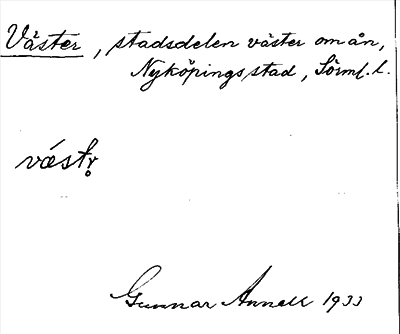 Väster, stadsdelen väster om ån,
Nyköpings stad, Sörml. l.
väst r̥
Gunnar Annell 1933